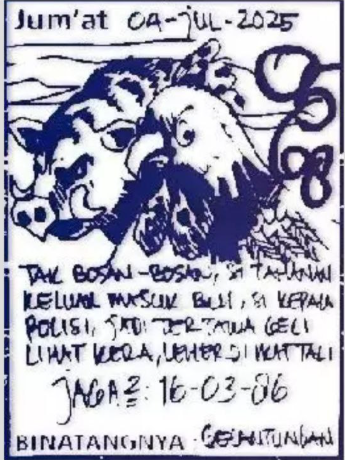 Jum'at 04-JUL-2025
TAK BOSAN-BOSAN, SI TAHANAN
KELUAR MASUK BUI, SI KEPALA
POLISI, JADI TERTAWA GELI
LIHAT KERA, LEHER DI IKAT TALI
JAGA2: 16-03-86
BINATANGNYA : GELANTUNGAN